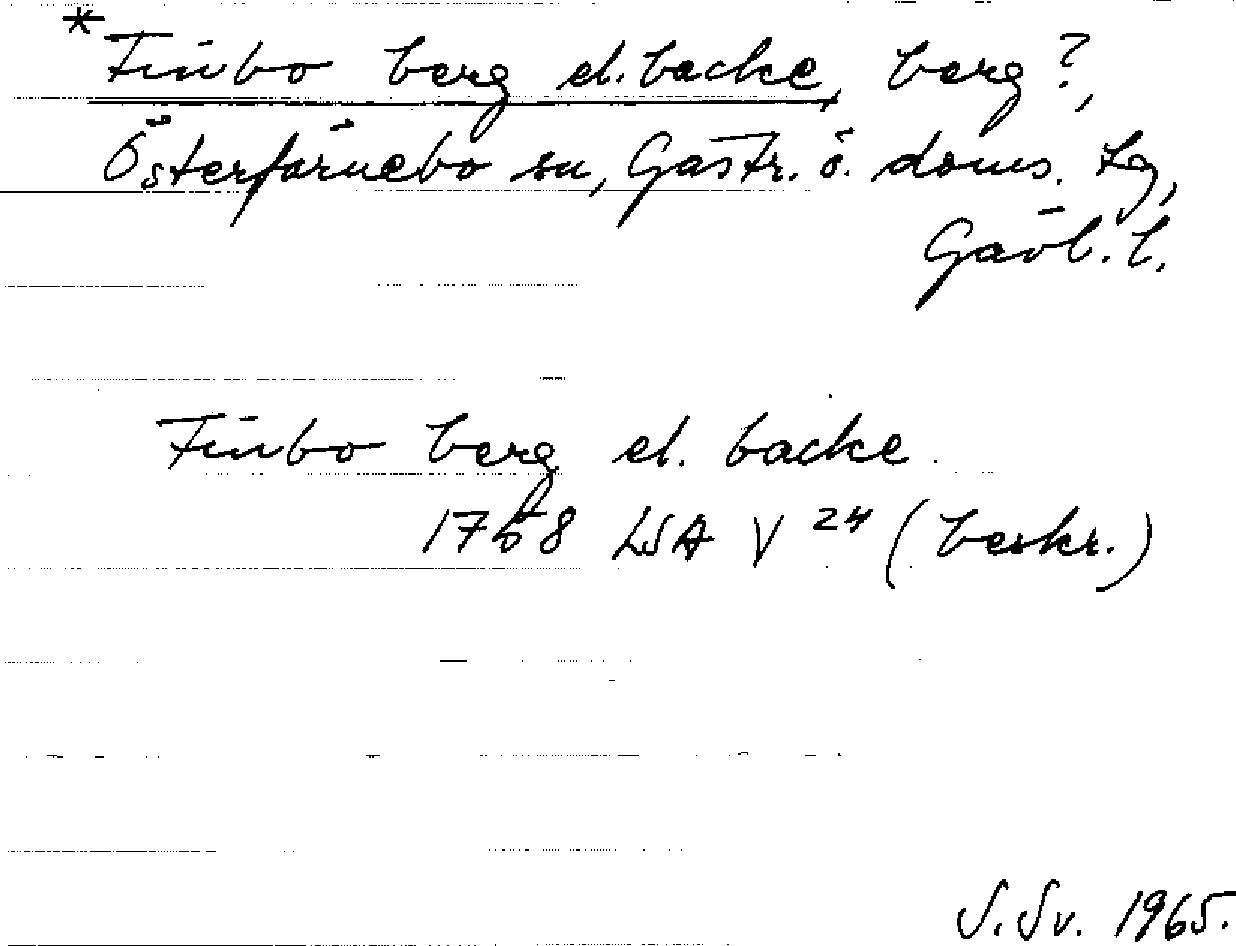 *Finbo berg el. backe, berg?,
Österfärnebo sn, Gästr. ö. doms. lg,
Gävl. l.
Finbo berg el. backe
1768 LSA V 24 (beskr.)
S. Sv. 1965.